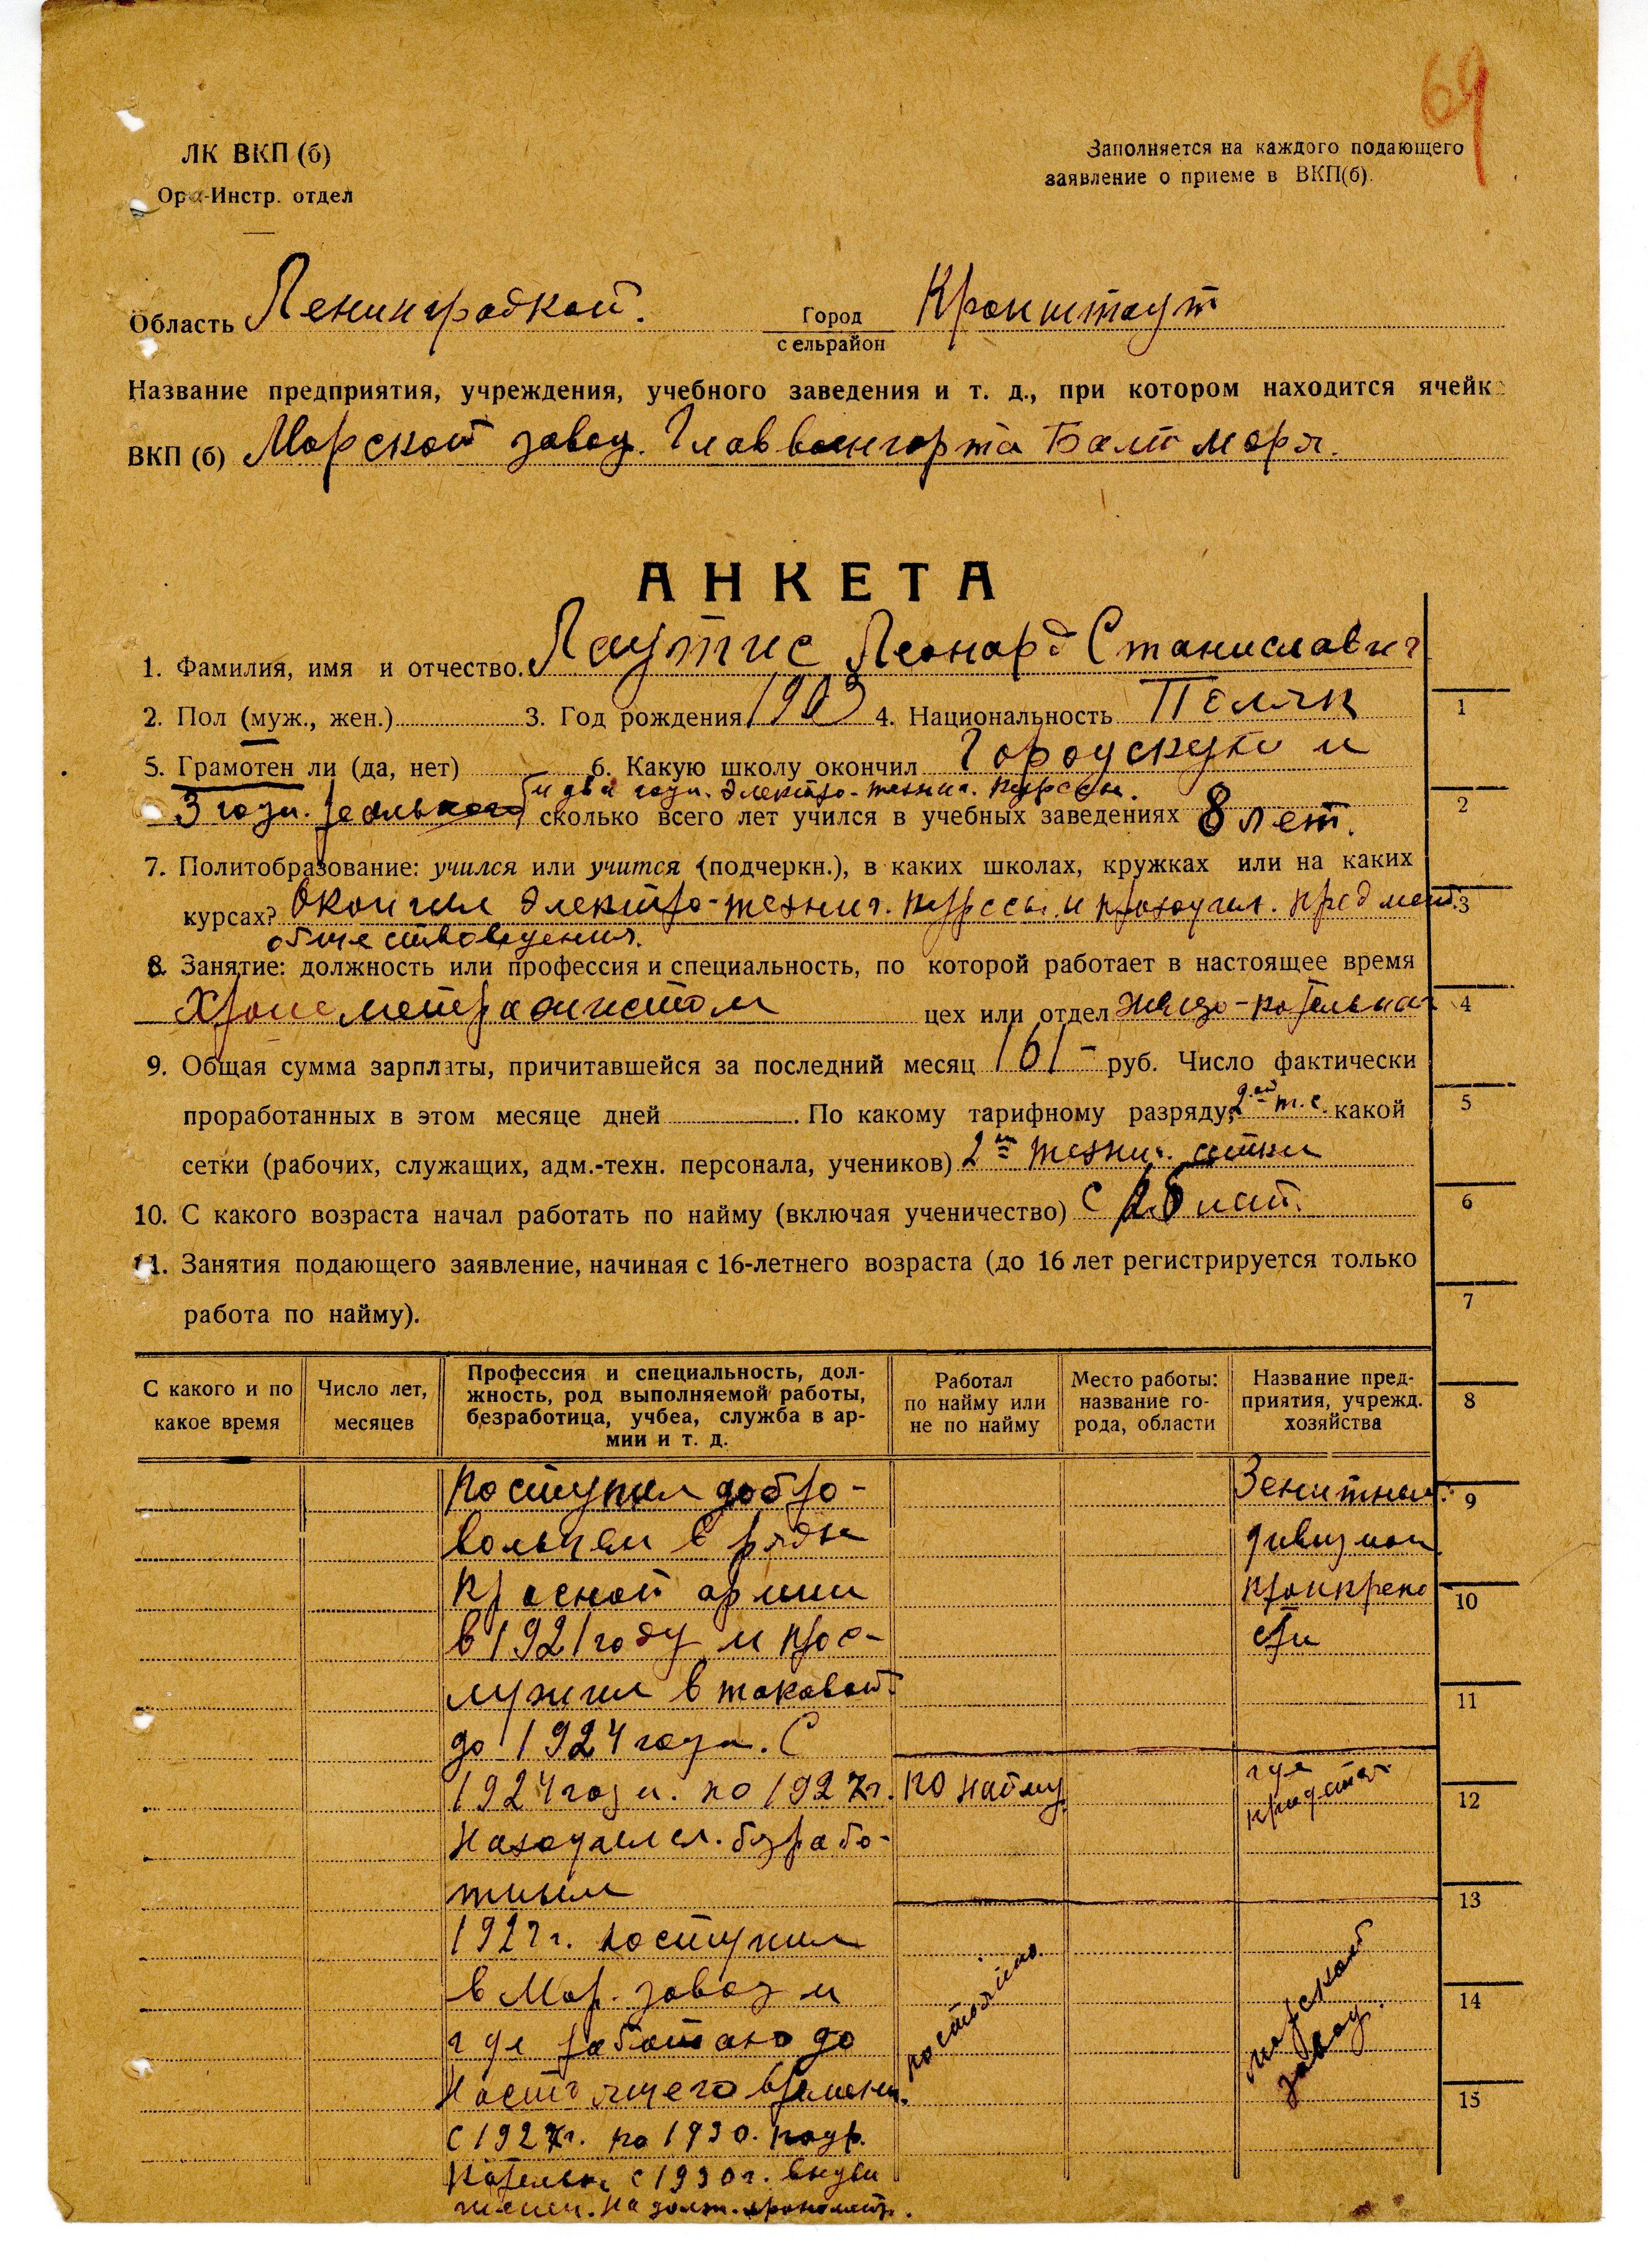 69
ЛК ВКП (б)
Орг-Инстр. отдел
Заполняется на каждого подающего
заявление о приеме в ВКП(б).
Область Ленинградкой. Город Кронштаут
сельрайон
Название предприятия, учреждения, учебного заведения и т. д., при котором находится ячейк
ВКП (б) Морской завод. Главвоенпорта Балт моря.
АНКЕТА
1. Фамилия, имя и отчество. Лаутис Леонард Станиславич
2. Пол (муж., жен.) 3. Год рождения 1903 4. Национальность Поляк
5. Грамотен ли (да, нет) 6. Какую школу окончил Городскую и
и два года. Электро-технич. курсы.
3 года. реального сколько всего лет учился в учебных заведениях 8 лет.
7. Политобразование: учился или учится (подчеркн.), в каких школах, кружках или на каких
курсах? Окончил Электро-технич. курсы. и проходил. предмет.
обществоведения.
8. Занятие: должность или профессия и специальность, по которой работает в настоящее время
Хронометражистом цех или отдел железо-котельная
9. Общая сумма зарплаты, причитавшейся за последний месяц 161 - руб. Число фактически
проработанных в этом месяце дней . По какому тарифному разряду, 2ой т. с. какой
сетки (рабочих, служащих, адм.-техн. персонала, учеников) 2й технич. сетки
10. С какого возраста начал работать по найму (включая ученичество) С
11. Занятия подающего заявление, начиная с 16-летнего возраста (до 16 лет регистрируется только
работа по найму).
С какого и по какое время
Число лет, месяцев
Профессия и специальность, дол-
жность, род выполняемой работы,
безработица, учбеа, служба в ар-
мии и т. д.
Работал
по найму или
не по найму
Место работы:
название го-
рода, области
Название пред-
приятия, учрежд.
хозяйства
Поступил добро-
вольцем в ряды
Красной армии
в 1921 году и прос-
лужил в таковой
до 1924 года. С
1924 года. по 1927г.
находился. безрабо-
тным
1927г. поступил
в Мор. завод и
где работаю до
настоящего времени.
с 1927г. по 1930. подр.
котельн. с 1930г. выдви
жением. на долж. хрономет.
по найму.
постоянно.
Зенитный
дивизион
кронкрепо
сти
где
придется
морской
завод.
1
2
3
4
5
6
7
8
9
10
11
12
13
14
15